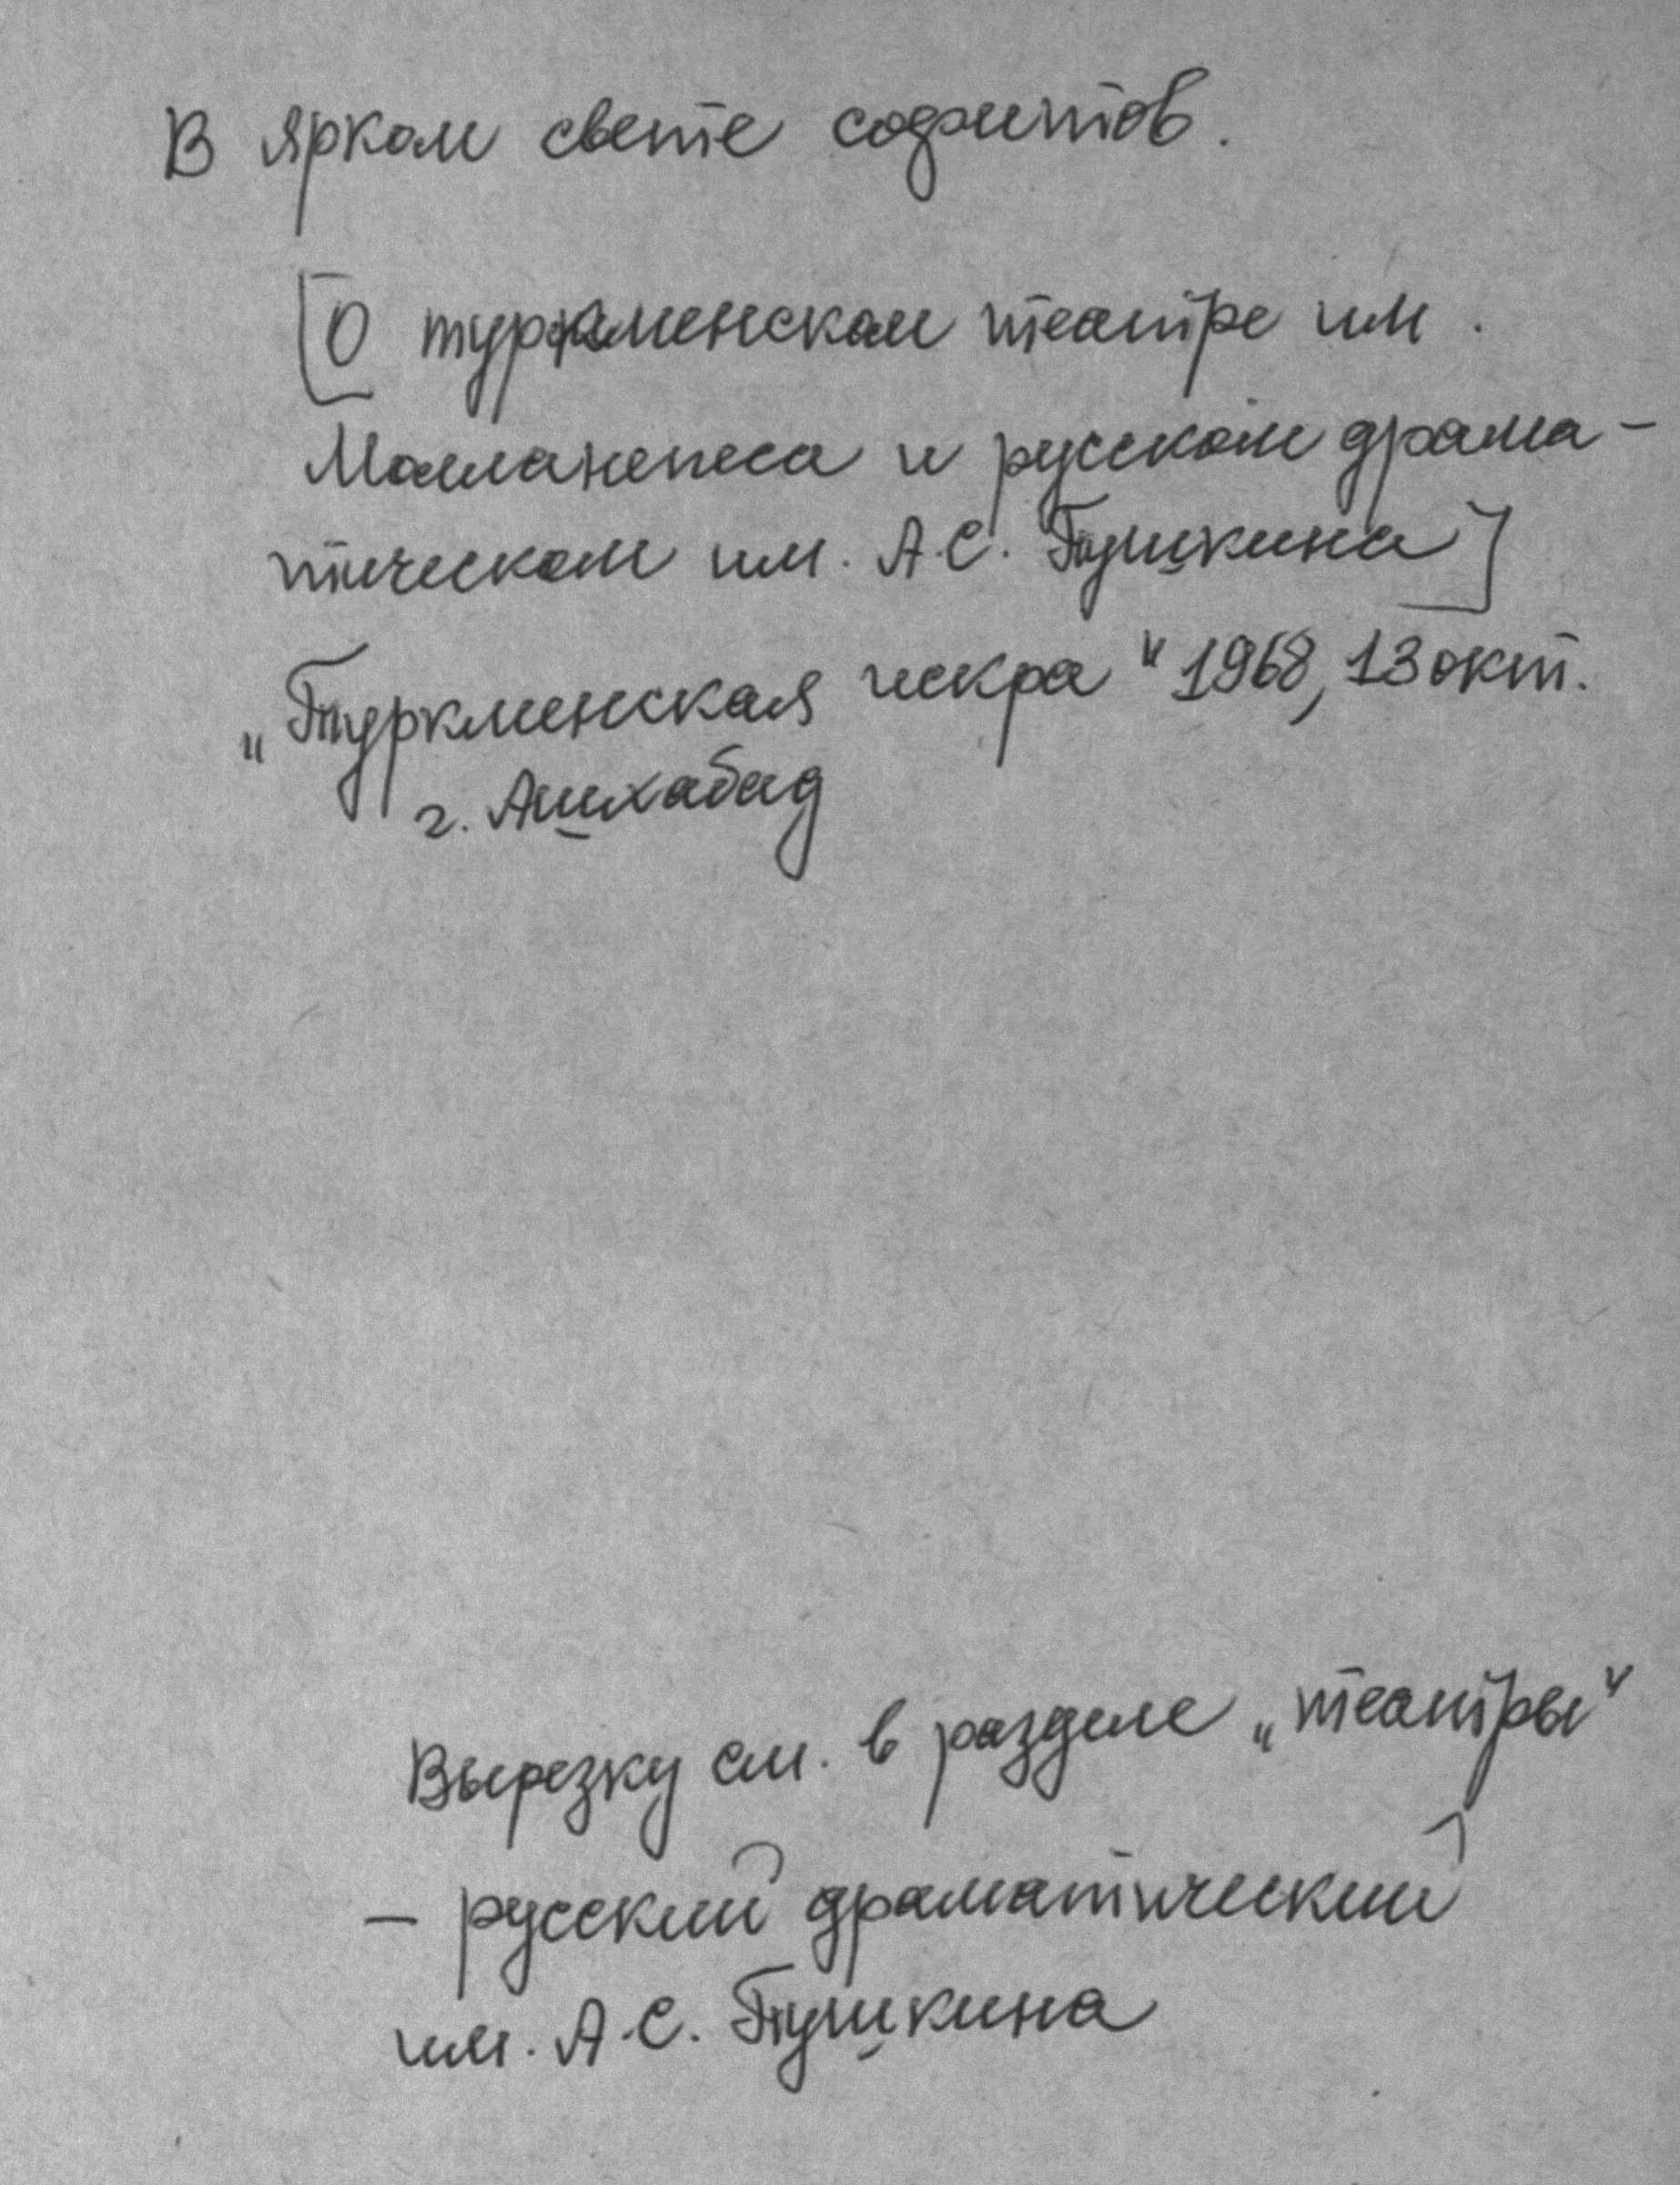 В ярком свете софитов.
[О туркменском театре им.
Молланепеса и русском драма-
тическом им. А.С. Пушкина]
„Туркменская искра" 1968, 13 окт.
г. Ашхабад
Вырезку см. в разделе „театры"
- русский драматический
им. А.С. Пушкина